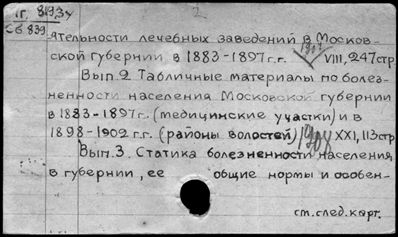 1г. 8193у
2
Сб 839
ятельности лечебных заведений в Москов-
ской губернии в 1883-1897 г.г. 1901 VIII, 247стр
Вып. 2. Табличные материалы по болез-
ненности населения Московской губернии
в 1883-1897г. (медицинские участки) и в
1898-1902 г.г. (районы волостей) 1908 XXI, 113стр
Вып. 3. Статика болезненности населения
в губернии, ее общие нормы и особен-
см. след. карт.